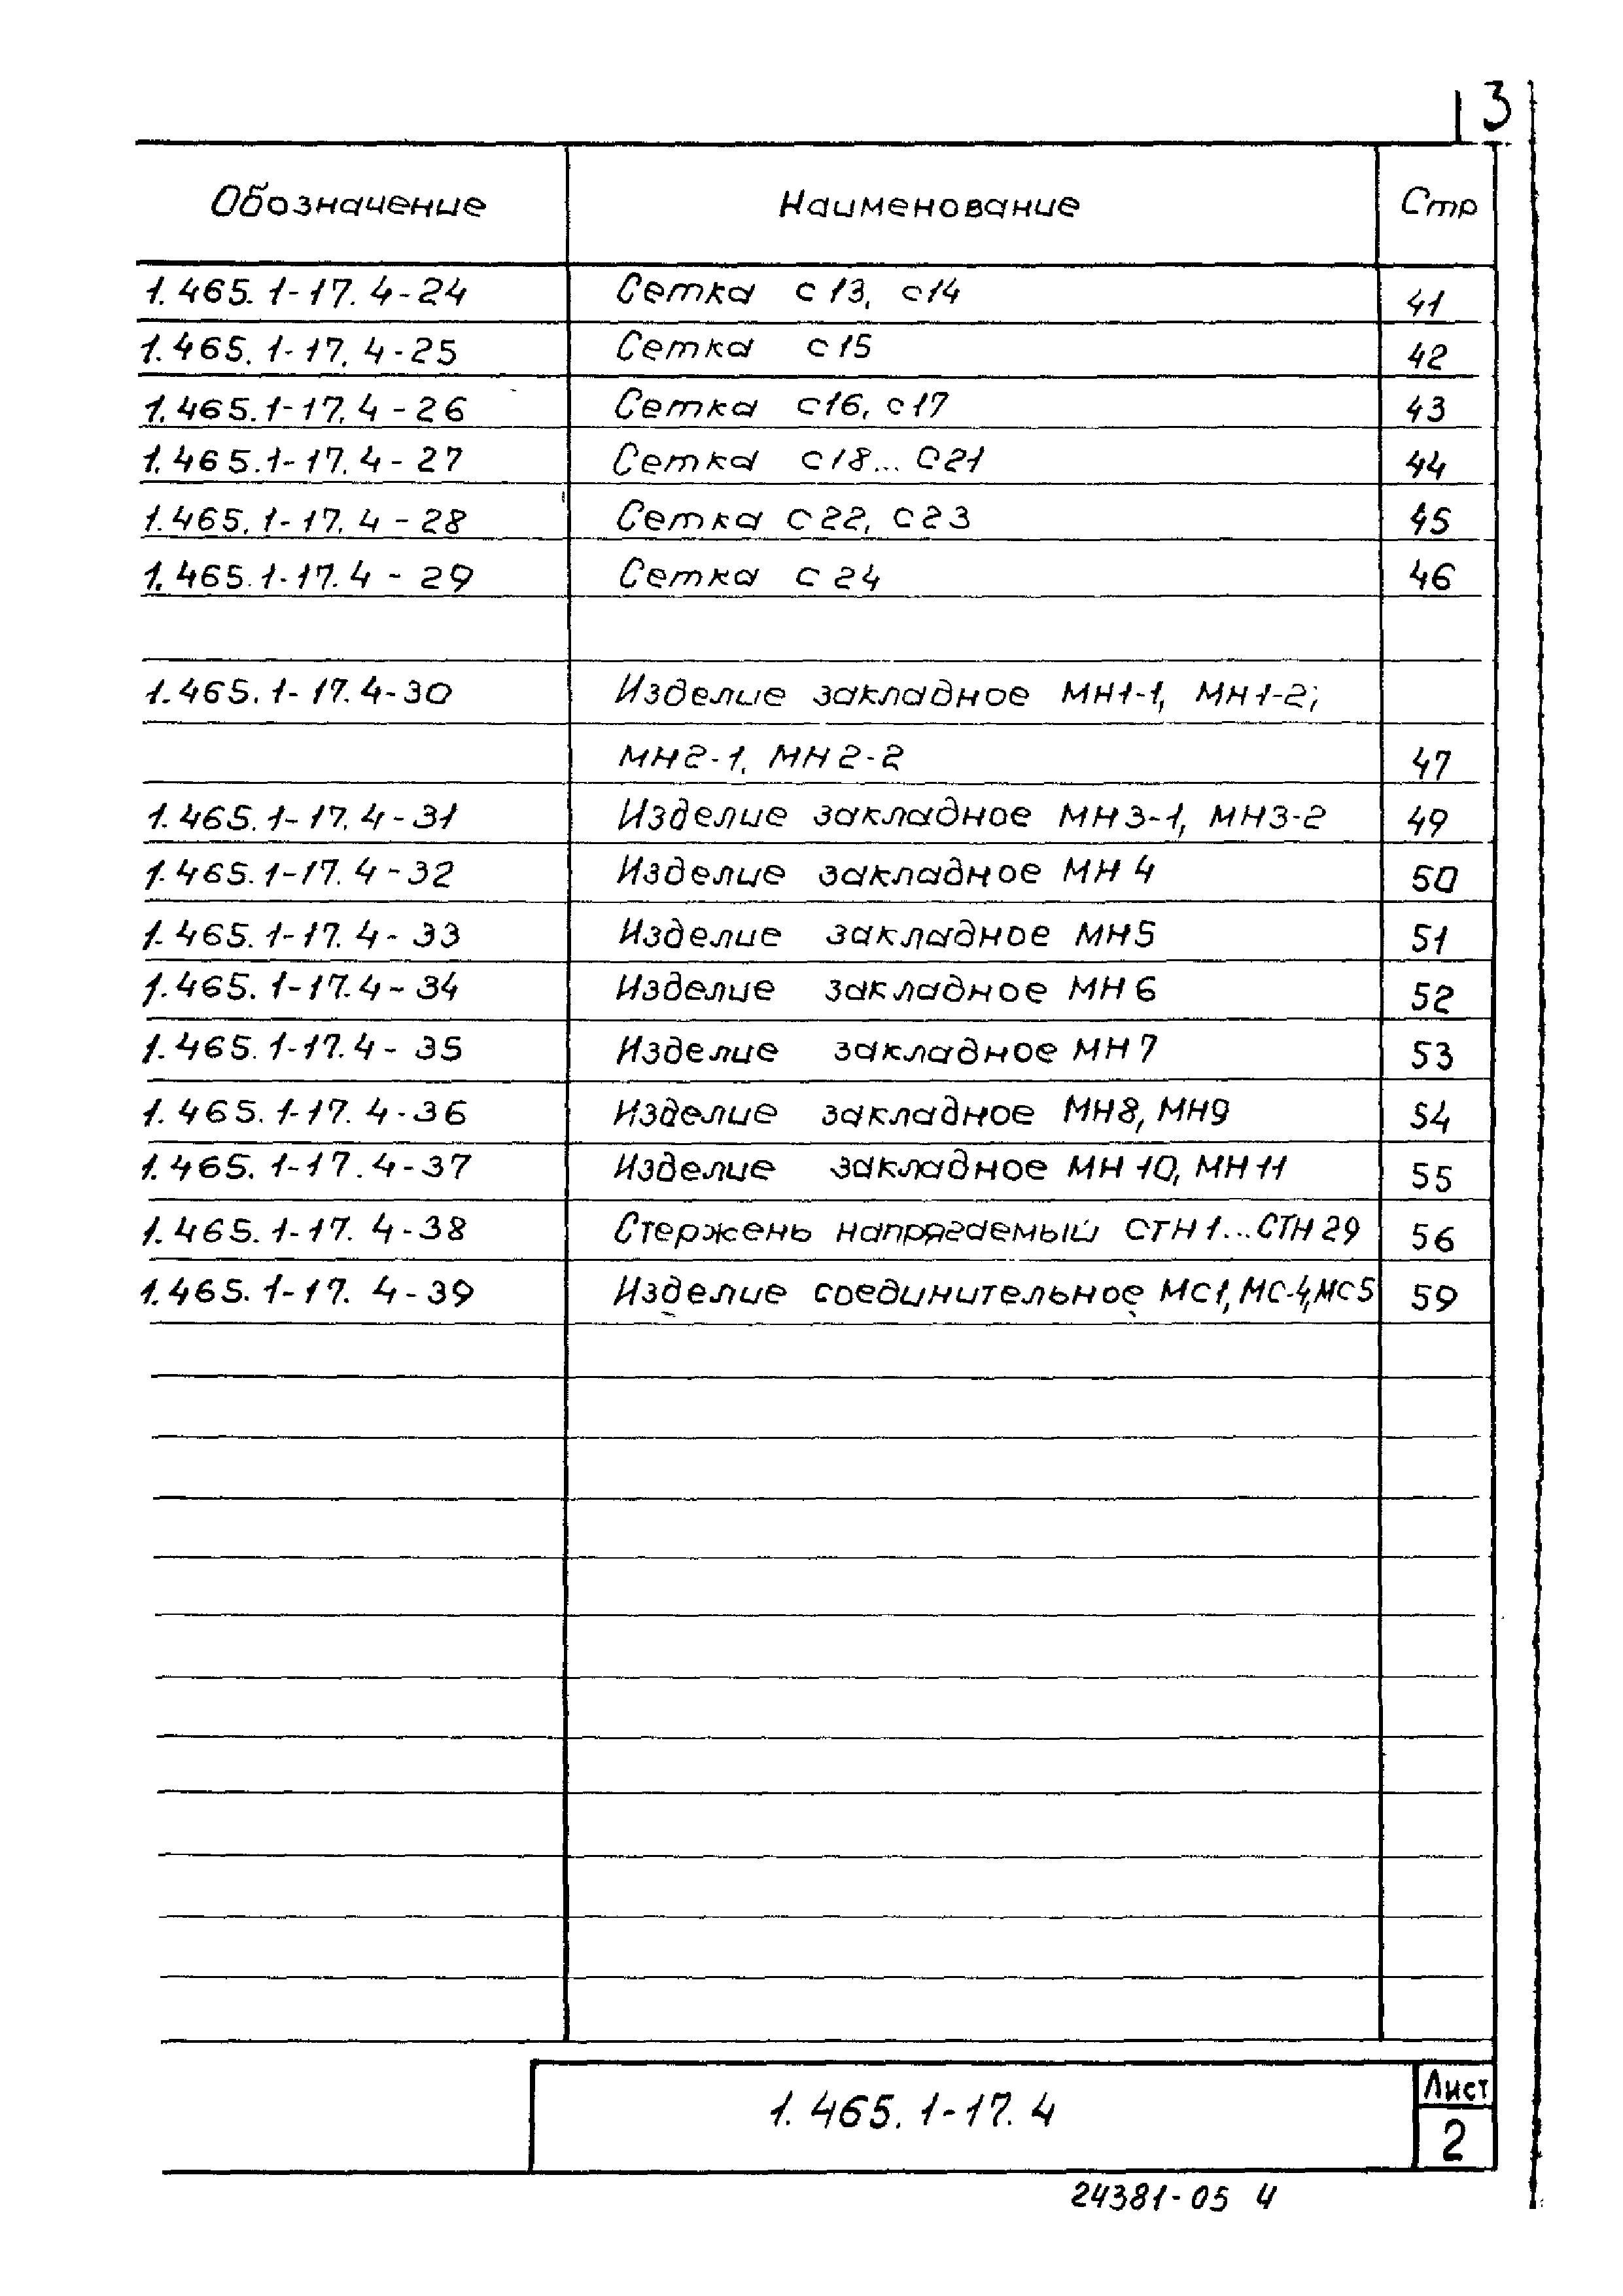 3
Обозначение Наименование Стр
1.465.1-17.4-24 Сетка С13, С14 41
1.465.1-17.4-25 Сетка С15 42
1.465.1-17.4-26 Сетка С16, С17 43
1.465.1-17.4-27 Сетка С18... С21 44
1.465.1-17.4-28 Сетка С22, С23 45
1.465.1-17.4-29 Сетка С24 46
1.465.1-17.4-30 Изделие закладное МН1-1, МН1-2;
МН2-1, МН2-2 47
1.465.1-17.4-31 Изделие закладное МН3-1, МН3-2 49
1.465.1-17.4-32 Изделие закладное МН4 50
1.465.1-17.4-33 Изделие закладное МН5 51
1.465.1-17.4-34 Изделие закладное МН6 52
1.465.1-17.4-35 Изделие закладное МН7 53
1.465.1-17.4-36 Изделие закладное МН8, МН9 54
1.465.1-17.4-37 Изделие закладное МН10, МН11 55
1.465.1-17.4-38 Стержень напрягаемый СТН1...СТН29 56
1.465.1-17.4-39 Изделие соединительное МС1, МС-4, МС5 59
1.465.1-17.4 Лист
2
24381-05 4